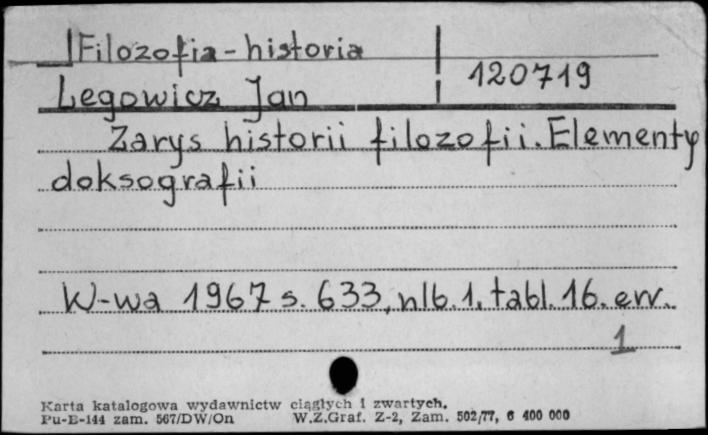 Filozofia - historia
120719
Legowicz Jan
Zarys historii filozofii. Elementy
doksografii
W-wa 1967 s. 633, nlb. 1, tabl. 16. err.
1
Karta katalogowa wydawnictw ciągłych i zwartych.
Pu-E-144 zam. 567/DW/On W.Z.Graf. Z-2, Zam. 502/77, 6 400 000